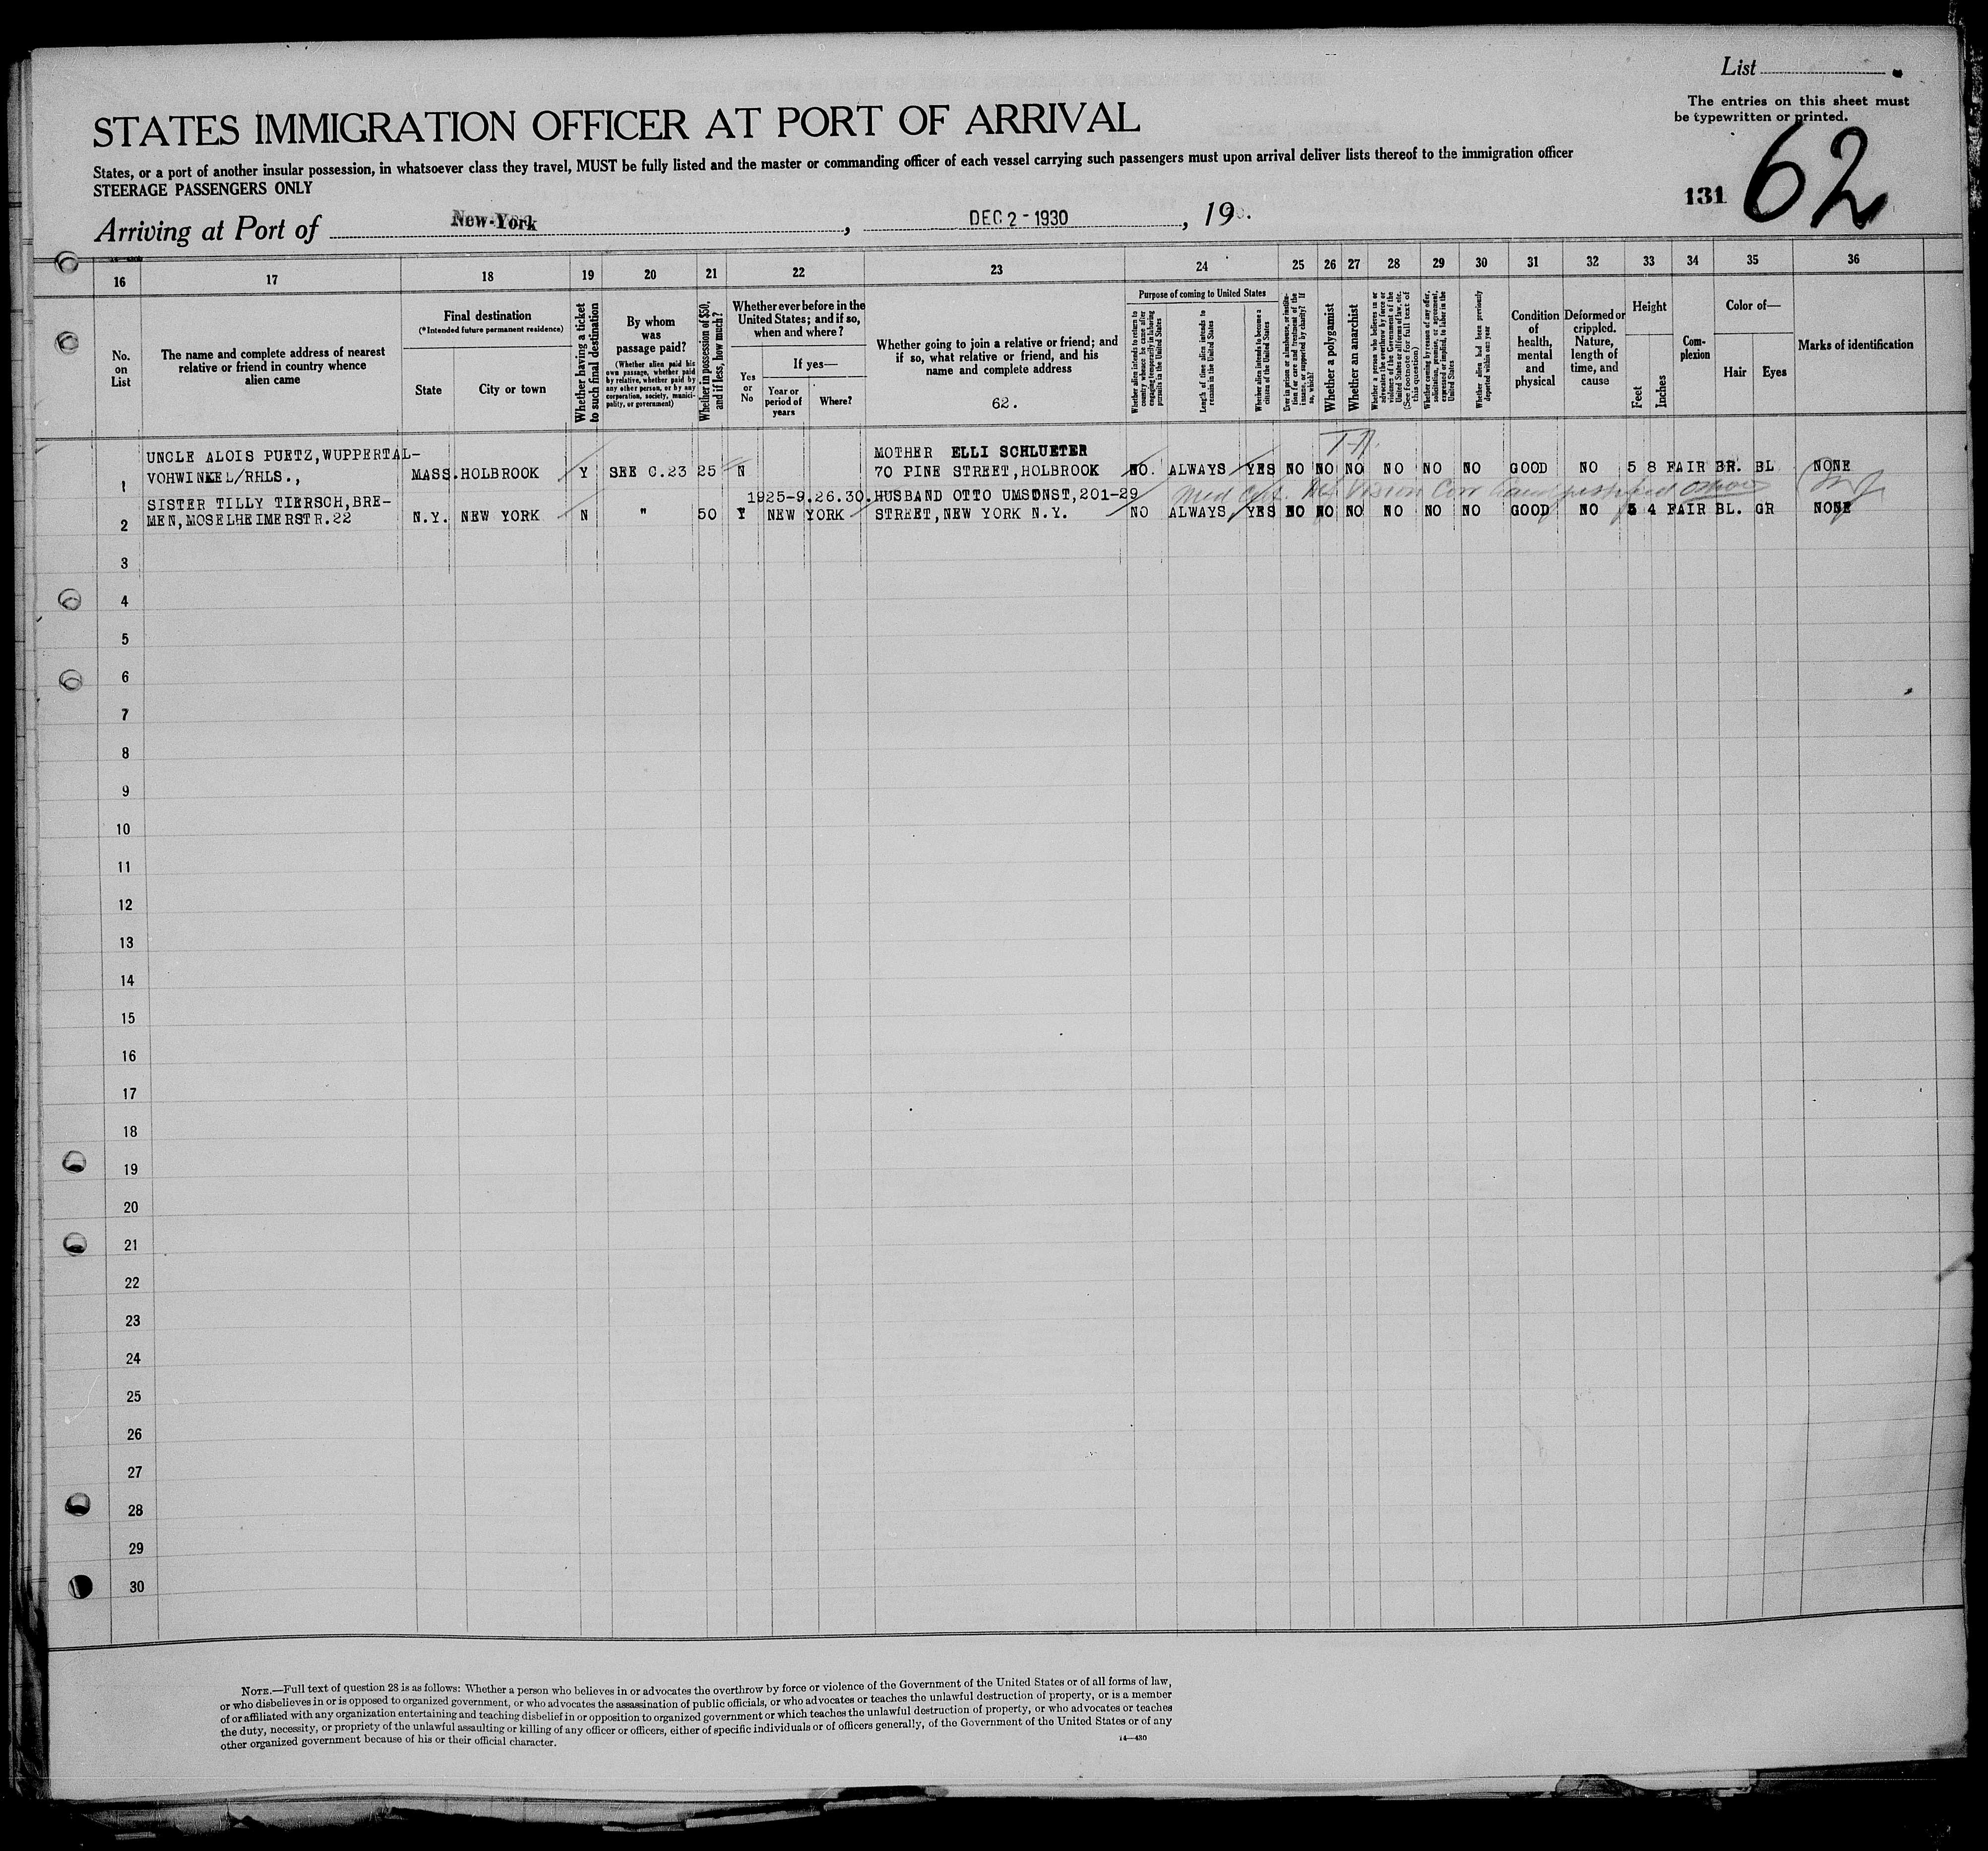 List
The entries on this sheet must
be typewritten or printed.
STATES IMMIGRATION OFFICER AT PORT OF ARRIVAL
62
States, or a port of another insular possession, in whatsoever class they travel, MUST be fully listed and the master or commanding officer of each vessel carrying such passengers must upon arrival deliver lists thereof to the immigration officer
STEERAGE PASSENGERS ONLY
131
Arriving at Port of New-York, DEC 2 - 1930, 19
16 17 18 19 20 21 22 23 24 25 26 27 28 29 30 31 32 33 34 35 36
No.
on
List
The name and complete address of nearest
relative or friend in country whence
alien came
Final destination
(*Intended future permanent residence)
State
City or town
Whether having a ticket
to such final destination
By whom
was
passage paid?
(Whether alien paid his
own passage, whether paid
by relative, whether paid by
any other person, or by any
corporation, society, munici-
pality, or government)
Whether in possession of $50,
and if less, how much?
Whether ever before in the
United States; and if so,
when and where?
Yes
or
No
If yes—
Year or
period of
years
Where?
Whether going to join a relative or friend; and
if so, what relative or friend, and his
name and complete address
62.
Purpose of coming to United States
Whether alien intends to return to
country whence he came after
engaging temporarily in laboring
pursuits in the United States
Length of time alien intends to
remain in the United States
Whether alien intends to become a
citizen of the United States
Ever in prison or almshouse, or institu-
tion for care and treatment of the
insane, or supported by charity? If
so, which?
Whether a polygamist
Whether an anarchist
Whether a person who believes in or
advocates the overthrow by force or
violence of the Government of the
United States or all forms of law, etc.
(See footnote for full text of
this question)
Whether coming by reason of any offer,
solicitation, promise, or agreement,
expressed or implied, to labor in the
United States
Whether alien had been previously
deported within one year
Condition
of
health,
mental
and
physical
Deformed or
crippled.
Nature,
length of
time, and
cause
Height
Feet
Inches
Com-
plexion
Color of—
Hair
Eyes
Marks of identification
UNCLE ALOIS PUETZ,WUPPERTAL- MOTHER ELLI SCHLUETER
1 VOHWINKEL/RHLS., MASS. HOLBROOK Y SEE C.23 25 N 70 PINE STREET,HOLBROOK NO. ALWAYS YES NO NO NO NO NO NO GOOD NO 5 8 FAIR BR. BL NONE
SISTER TILLY TIERSCH,BRE- 1925-9.26.30. HUSBAND OTTO UMSONST,201-29 Med Cert. Vision
2 MEN,MOSELHEIMERSTR.22 N.Y. NEW YORK N " 50 Y NEW YORK STREET,NEW YORK N.Y. NO ALWAYS YES NO NO NO NO NO NO GOOD NO 5 4 FAIR BL. GR NONE
3
4
5
6
7
8
9
10
11
12
13
14
15
16
17
18
19
20
21
22
23
24
25
26
27
28
29
30
NOTE.—Full text of question 28 is as follows: Whether a person who believes in or advocates the overthrow by force or violence of the Government of the United States or of all forms of law,
or who disbelieves in or is opposed to organized government, or who advocates the assassination of public officials, or who advocates or teaches the unlawful destruction of property, or is a member
of or affiliated with any organization entertaining and teaching disbelief in or opposition to organized government or which teaches the unlawful destruction of property, or who advocates or teaches
the duty, necessity, or propriety of the unlawful assaulting or killing of any officer or officers, either of specific individuals or of officers generally, of the Government of the United States or of any
other organized government because of his or their official character.
14—430